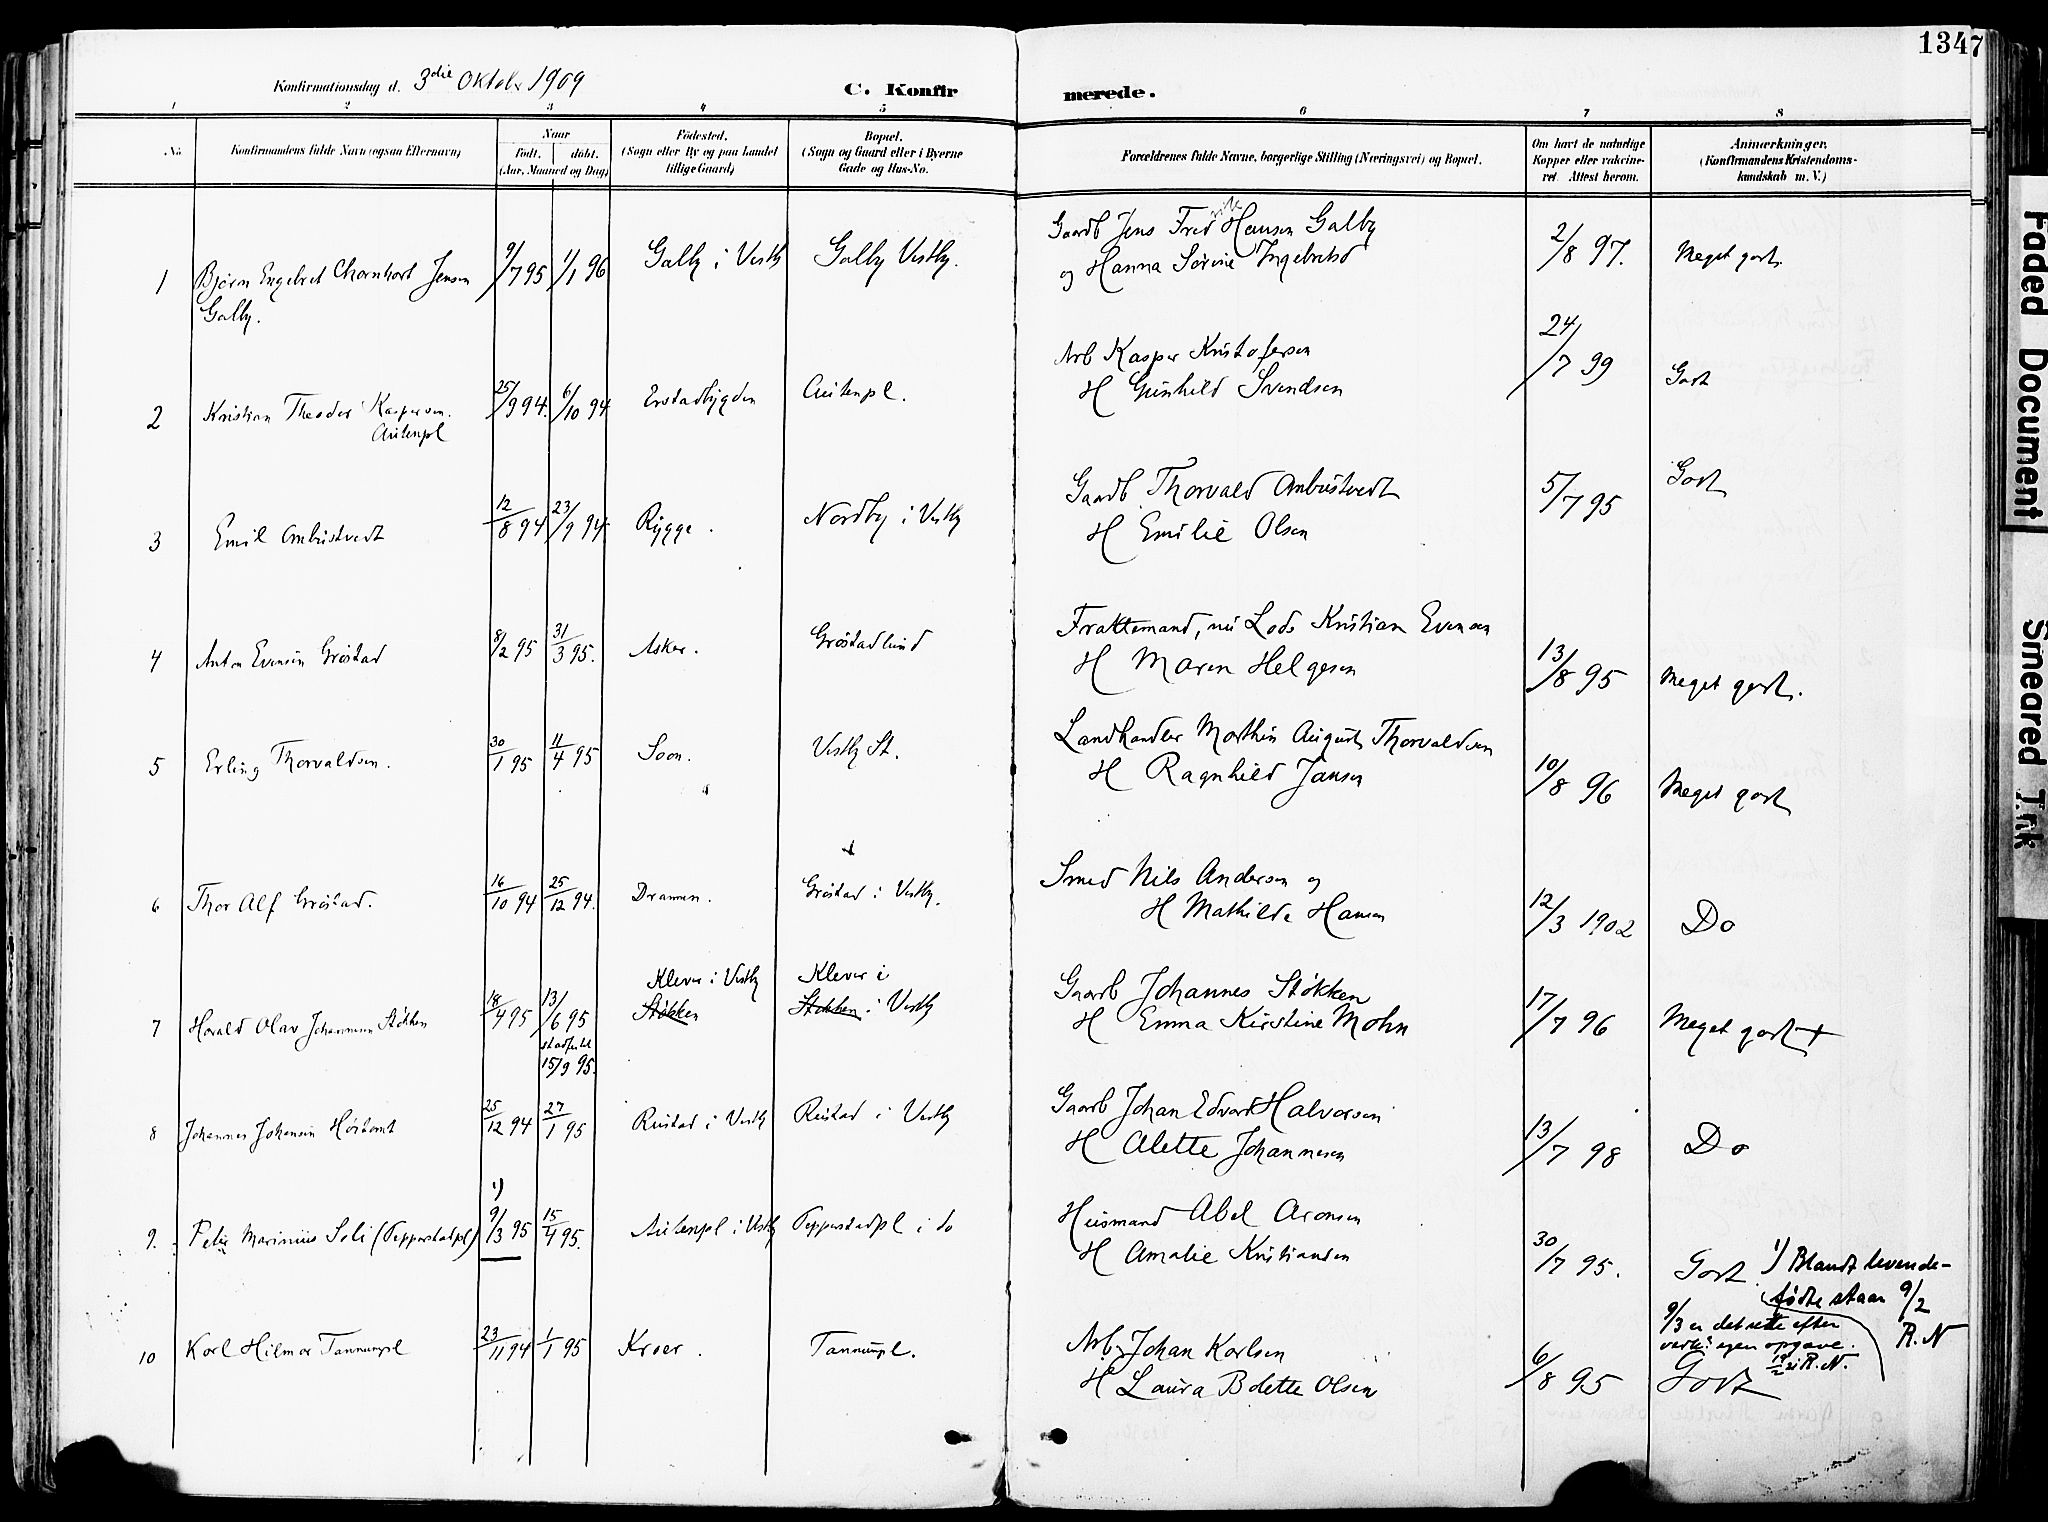 1347
Konfirmationsdag d. 3die Oktobr 1909
C. Konfirmerede.
1 2 3 4 5 6 7 8
No. Konfirmandens fulde Navn (ogsaa Efternavn) Naar Födt. döbt. (Aar, Maaned og Dag) Födested. (Sogn eller By og paa Landet tillige Gaard) Bopæl. (Sogn og Gaard eller i Byerne Gade og Hus-No. Forældrenes fulde Navne, borgerlige Stilling (Næringsvei) og Bopæl. Om havt de naturlige Kopper eller vakcineret. Attest herom. Anmærkninger, (Konfirmandens Kristendomskundskab m. V.)
1 Bjørn Engebret Jensen 9/7 95 1/1 96 Galby i Vestby Galby Vestby. Gaardb Jens Fredrik Hansen Galby 2/8 97. Meget godt.
Galby. og Hanna Sørine Ingebretsd
2 Kristian Theodor Kaspersen. 25/9 94. 6/10 94 Enebakbygden Autenpl. Arb Kasper Kristofersen 24/7 99 Godt
Autenpl H Gunhild Svendsen
3 Emil Ambustvedt 12/8 94 23/9 94 Rygge. Nordby i Vestby Gaardb. Thorvald Ambustvedt 5/7 95 Godt
H Emilie Olsen
4 Anton Evensen Grøstad 8/2 95 31/3 95. Asker. Grøstadlund Fraktemand, nu Lods Kristian Evensen 13/8 95 Meget godt.
H Maren Helgesen
5 Erling Thorvaldsen. 30/1 95 11/4 95 Soon. Vestby St. Landhandler Marthin August Thorvaldsen 10/8 96 Meget godt
H Ragnhild Jansen
6 Thor Alf Grøstad. 16/10 94 25/12 94. Dramen. Grøstad i Vestby. Smed Nils Andersen og 12/3 1902 Do
H Mathilde Hansen
7 Harald Olav Johannesen Støkken 18/4 95 13/6 95 Klever i Vestby Klever i Gaardb Johannes Støkken 17/7 96 Meget godt +
Støkken Støkken i Vestby H Emma Kirstine Mohn
stadfestet
15/9 95.
8 Johannes Johansen Høstomt 25/12 94 27/1 95 Rustad i Vestby Rustad i Vestby Gaardb Johan Edvard Halvorsen 13/7 98 Do
H Alette Johannesen
1)
9. Peder Marinius Soli (Pepperstadpl) 9/3 95 15/4 95. Autenpl i Vestby Pepperstadpl i do Husmand Abel Aronsen 30/7 95. Godt 1) Blandt levende-
H Amalie Kristiansen fødte staar 9/2
R. N
9/3 er det rette efter
vedk.s egen opgave.
R. N.
10 Karl Hilmar Tannumpl 23/11 94 1/1 95 Kroer. Tannumpl. Arb. Johan Karlsen 6/8 95 Godt
H Laura Bolette Olsen
Faded Document
Smeared Ink